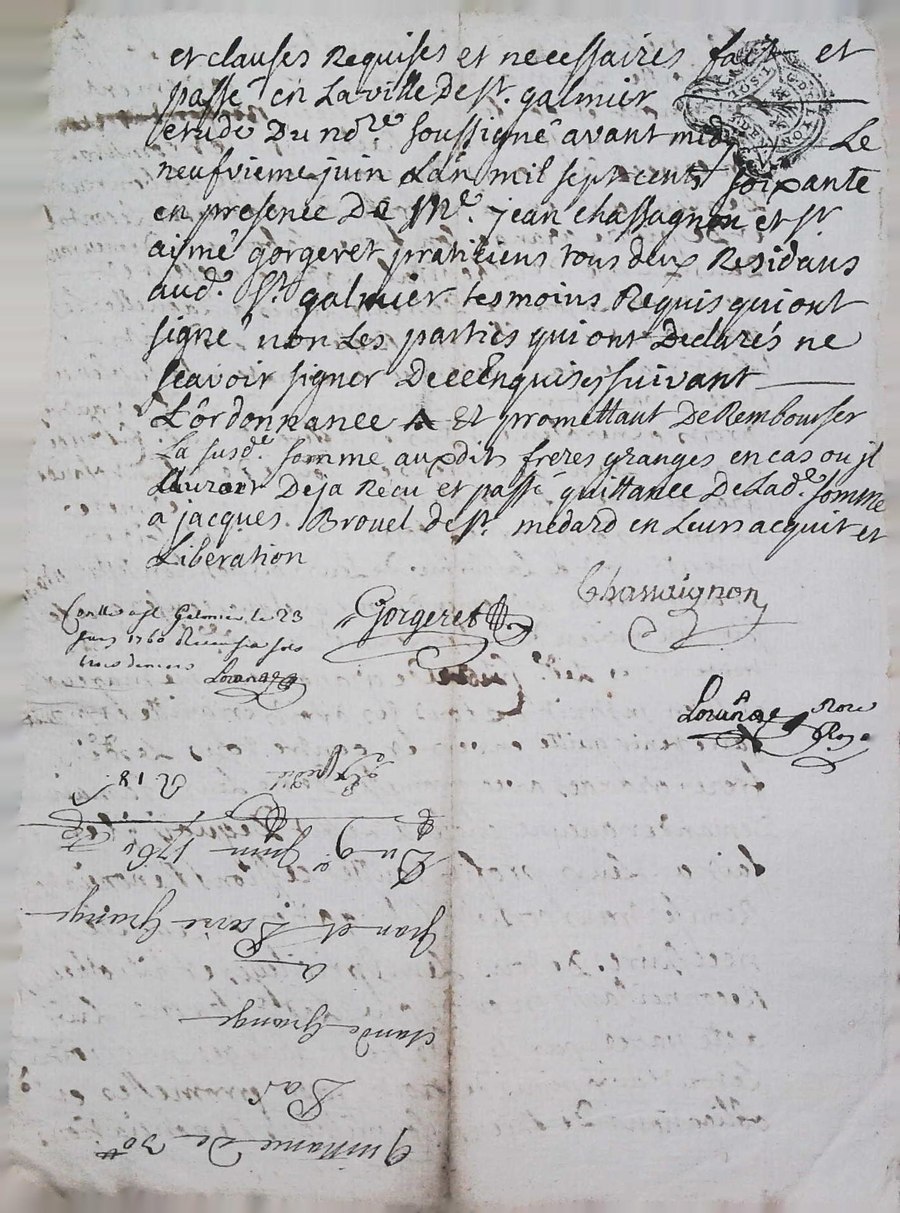 et clauses Requises et necessaires fait et
passé en La ville De st. galmier
etude Du nore soussigné avant midy Le
neufvieme juin Lan mil sept cent soixante
en presence De Me. jean chassagnon et sr.
aimé gorgeret praticiens tous deux Residans
aud. st. galmier tesmoins Requis qui ont
signé non Les parties qui ont Declarés ne
scavoir signer De ce Enquises suivant
L'ordonnance Et promettant De Rembourser
La susd. somme auxdits freres granges en cas ou il
Lauroit Deja Recu et passé quittance De Lad. somme
a jacques Brouel de st. medard en Leurs acquit et
Liberation
Chassaignon
Gorgeret
Con.lle a st Galmier le 23
juin 1760 Recu six sols
trois deniers
Lorange
Lorange Nore
Roy.
Quittance De 30tt
Par
claude Grange
a
Jean et Pierre Grange
Du 9e Juin 1760
Expedié
R 18